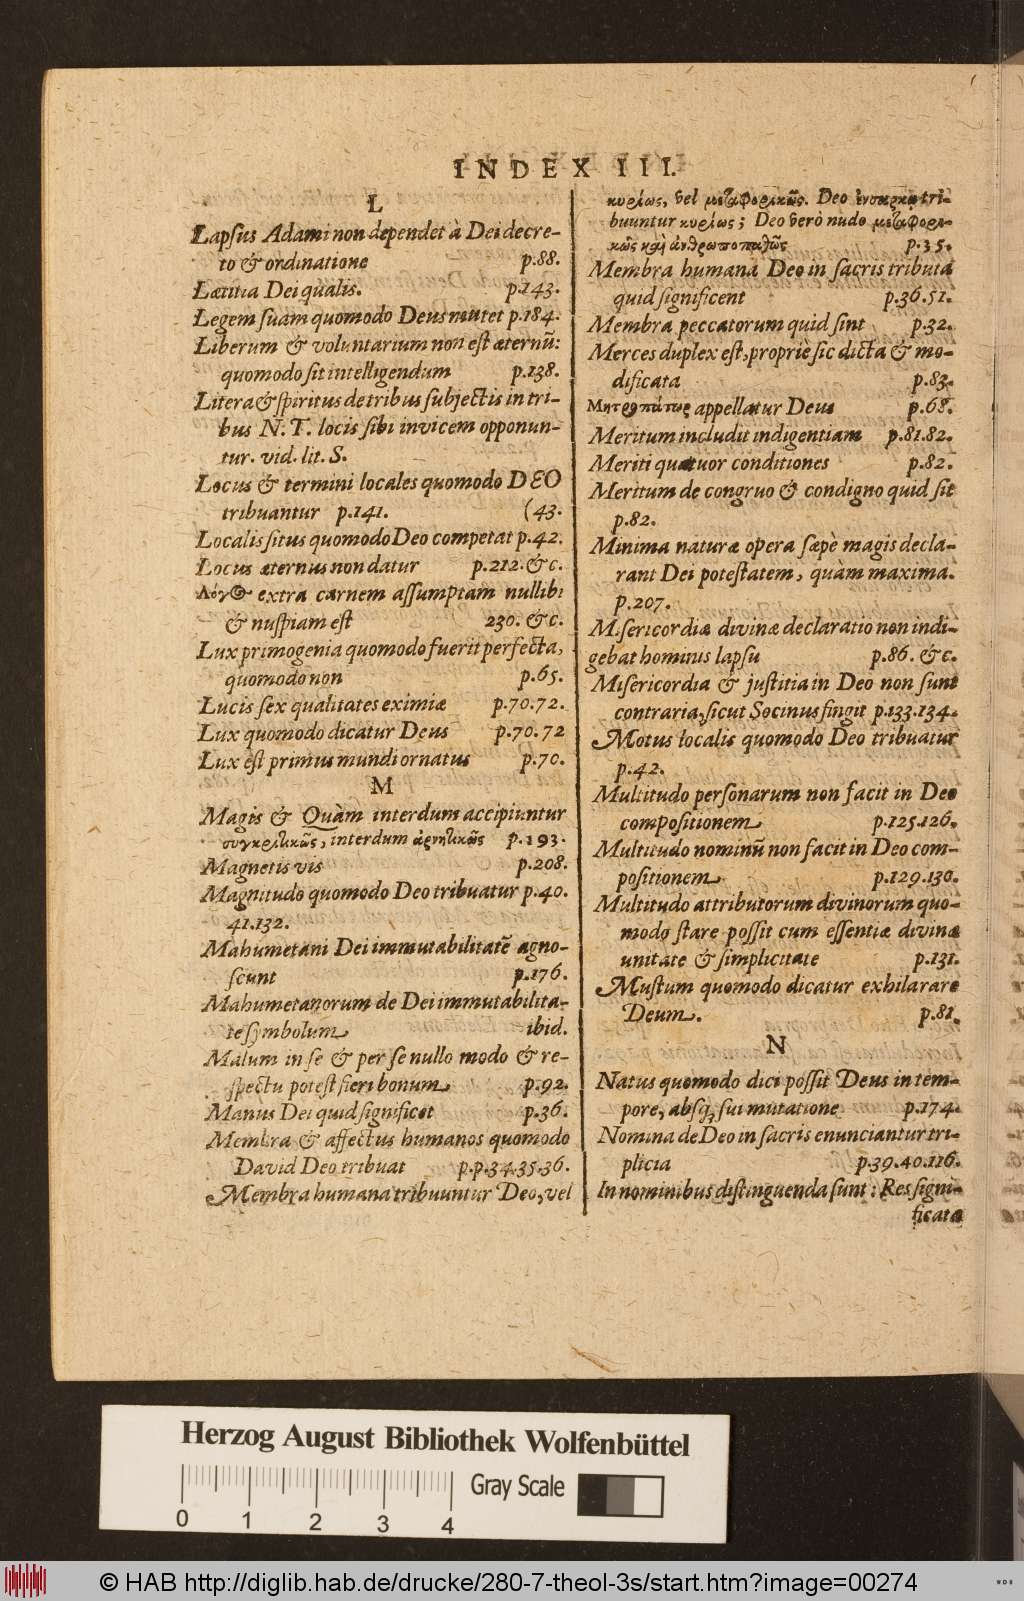 INDEX III.
L
Lapsus Adami non dependet à Dei decre-
to & ordinatione p.88.
Lætitia Dei qualis. p.143.
Legem suam quomodo Deus mutet p.184.
Liberum & voluntarium non est æternũ:
quomodo sit intelligendum p.138.
Litera & spiritus de tribus subjectis in tri-
bus N.T. locis sibi invicem opponun-
tur. vid. lit. S.
Locus & termini locales quomodo DEO
tribuantur p.141. (43.
Localis situs quomodo Deo competat p.42.
Locus æternus non datur p.212. &c.
Λόγος extra carnem assumptam nullibi
& nuspiam est 230. &c.
Lux primogenia quomodo fuerit perfecta,
quomodo non p.65.
Lucis sex qualitates eximiæ p.70.72.
Lux quomodo dicatur Deus p.70.72
Lux est primus mundi ornatus p.70.
M
Magis & Quàm interdum accipiuntur
συγκριτικῶς, interdum ἀρνητικῶς p.193.
Magnetis vis p.208.
Magnitudo quomodo Deo tribuatur p.40.
41.132.
Mahumetani Dei immutabilitatẽ agno-
scunt p.176.
Mahumetanorum de Dei immutabilita-
te symbolum ibid.
Malum in se & per se nullo modo & re-
spectu potest fieri bonum p.92.
Manus Dei quid significet p.36.
Membra & affectus humanos quomodo
David Deo tribuat p.p.34.35.36.
Membra humana tribuuntur Deo, vel
κυρίως, vel μεταφορικῶς. Deo ἐνσάρκῳ tri-
buuntur κυρίως; Deo verò nudo μεταφορι-
κῶς καὶ ἀνθρωποπαθῶς p.35.
Membra humana Deo in sacris tributa
quid significent p.36.51.
Membra peccatorum quid sint p.32.
Merces duplex est, propriè sic dicta & mo-
dificata p.83.
Μητροπάτωρ appellatur Deus p.68.
Meritum includit indigentiam p.81.82.
Meriti quatuor conditiones p.82.
Meritum de congruo & condigno quid sit
p.82.
Minima naturæ opera sæpè magis decla-
rant Dei potestatem, quàm maxima.
p.207.
Misericordiæ divinæ declaratio non indi-
gebat hominis lapsu p.86. &c.
Misericordia & justitia in Deo non sunt
contraria, sicut Socinus fingit p.133.134.
Motus localis quomodo Deo tribuatur
p.42.
Multitudo personarum non facit in Deo
compositionem p.125.126.
Multitudo nominũ non facit in Deo com-
positionem p.129.130.
Multitudo attributorum divinorum quo-
modo stare possit cum essentiæ divinæ
unitate & simplicitate p.131.
Mustum quomodo dicatur exhilarare
Deum. p.81.
N
Natus quomodo dici possit Deus in tem-
pore, absq; sui mutatione p.174.
Nomina de Deo in sacris enunciantur tri-
plicia p.39.40.116.
In nominibus distinguenda sunt: Res signi-
ficata
Herzog August Bibliothek Wolfenbüttel
Gray Scale
0 1 2 3 4
© HAB http://diglib.hab.de/drucke/280-7-theol-3s/start.htm?image=00274